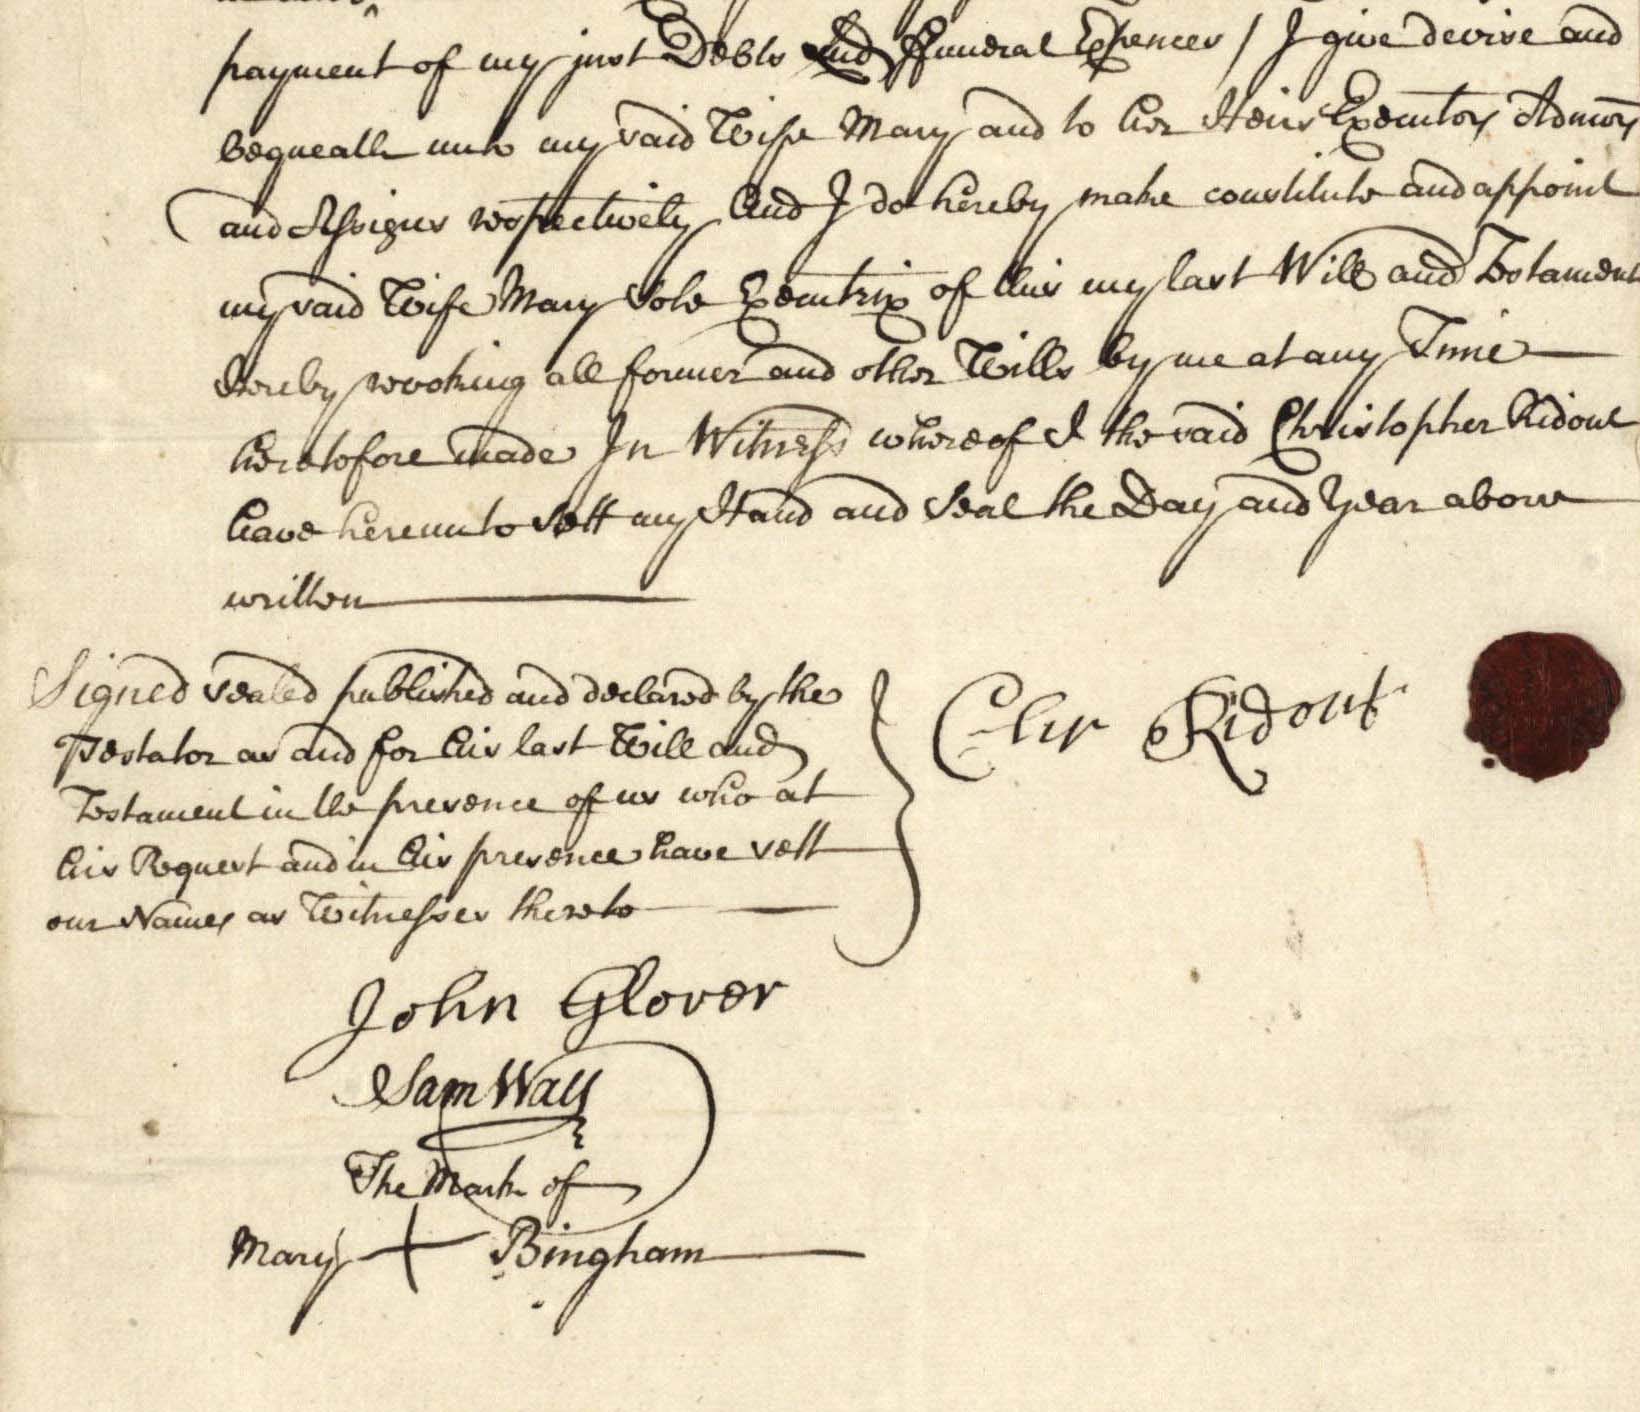 payment of my just Debts and Funeral Expences / I give devise and
bequeath unto my said Wife Mary and to her Heirs Executors Admors
and Assigns respectively And I do hereby make constitute and appoint
my said Wife Mary Sole Executrix of this my last Will and Testament
Hereby revoking all former and other Wills by me at any Time
heretofore made In Witness whereof I the said Christopher Ridout
have hereunto Sett my Hand and Seal the Day and Year above
written
Signed sealed published and declared by the
Testator as and for his last Will and
Testament in the presence of us who at
his Request and in his presence have sett
our Names as Witnesses thereto
Chr Ridout
John Glover
Sam Wall
The Mark of
Mary + Bingham